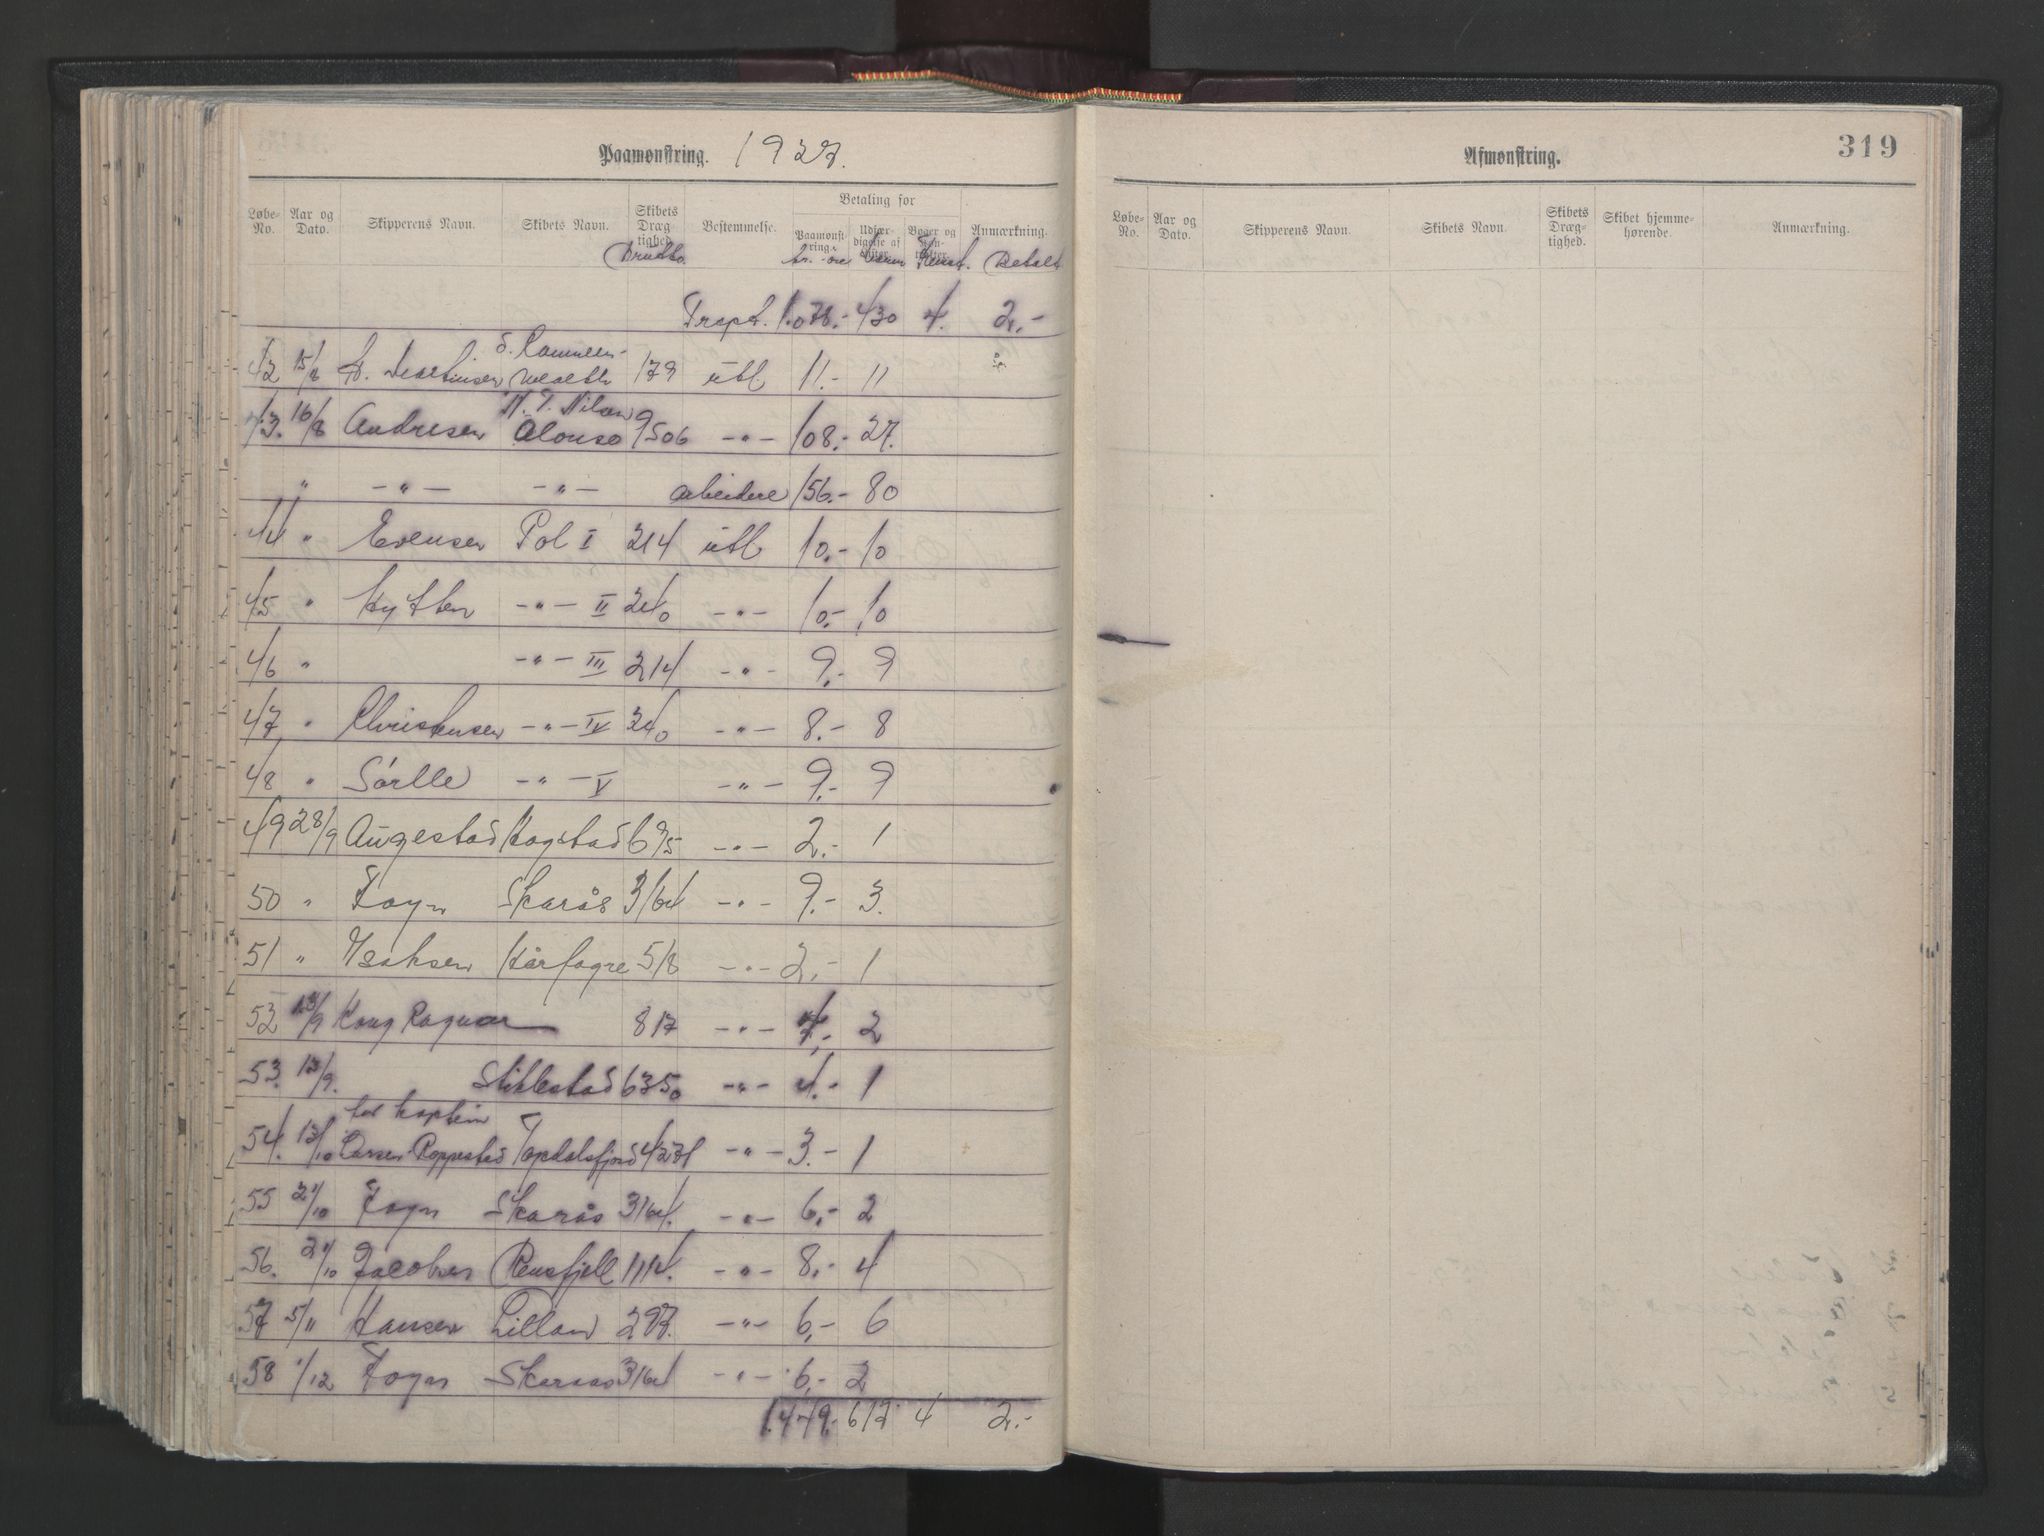 Paamønstring. 1927.
Løbe-No. Aar og Dato. Skipperens Navn. Skibets Navn. Skibets Dræg-tighed. Bestemmelse. Betaling for Paamønst-ring. Udfær-digelse af Bøger og Anmærkning.
Brutto kr. øre Betalt
Trspt. 1.078.- 430 4. 2.-
42 15/8 179 utl 11.- 11
N. T. Nilsen
43. 16/8 Andresen Alonso 9506 -"- 108.- 27.
" -"- -"- arbeidere 156.- 80
44 " Evensen Pol I 214 utl 10.- 10
45 " Hytten -"- II 240 -"- 10.- 10
46 " -"- III 214 -"- 9.- 9
47 " Christensen -"- IV 240 -"- 8.- 8
48 " Sørlle -"- V -"- 9.- 9
49 28/9 Augestad Kogstad 695 -"- 2.- 1
50 " Foyn Skarås 3164 -"- 9.- 3.
51 " Isaksen Hårfagre 518 -"- 2.- 1
52 13/9 Kong Ragnar 817 -"- 7.- 2
53. 13/9. Stiklestad 6350 -"- 4.- 1
ved kaptein
54. 13/10 Larsen Roppestad Topdalsfjord 4271 -"- 3.- 1
55 21/10 Foyn Skarås 3164. -"- 6.- 2
56. 21/10 Jacobsen Rensfjell 1114. -"- 8.- 4
57 5/11 Hansen Lillan 297. -"- 6,- 6
58 1/12 Foyn Skaraas 3164 -"- 6,- 2
1.479.- 617 4 2.-
319
Afmønstring.
Løbe-No. Aar og Dato. Skipperens Navn. Skibets Navn. Skibets Dræg-tighed. Skibet hjemme-hørende. Anmærkning.